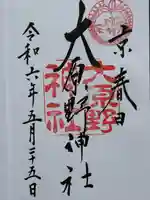 京春日
大原野神社
大原野
神社
令和六年五月二十五日